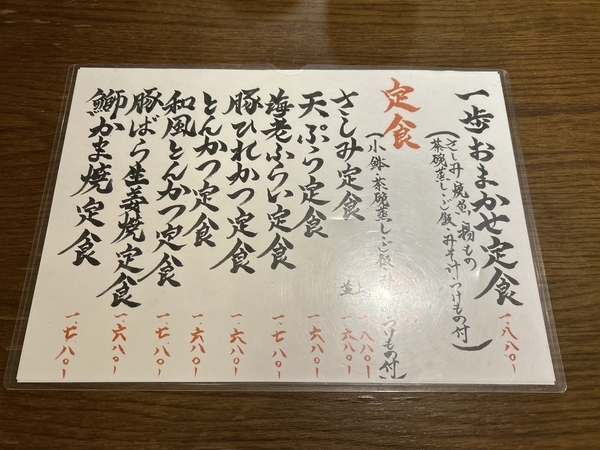 一歩おまかせ定食 一、八八〇ー
(さしみ・焼魚・揚もの
茶碗蒸し・ご飯・みそ汁・つけもの付)
定食
(小鉢・茶碗蒸し・ご飯・つけもの付)
さしみ定食 上 一、八八〇ー
並 一、六八〇ー
天ぷら定食 一、六八〇ー
海老ふらい定食 一、七八〇ー
豚ひれかつ定食 一、六八〇ー
とんかつ定食 一、六八〇ー
和風とんかつ定食 一、七八〇ー
豚ばら生姜焼定食 一、六八〇ー
鰤かま焼定食 一、七八〇ー